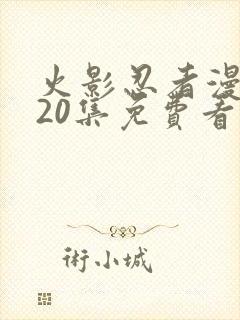 火影忍者漫
20集免費看
術小城